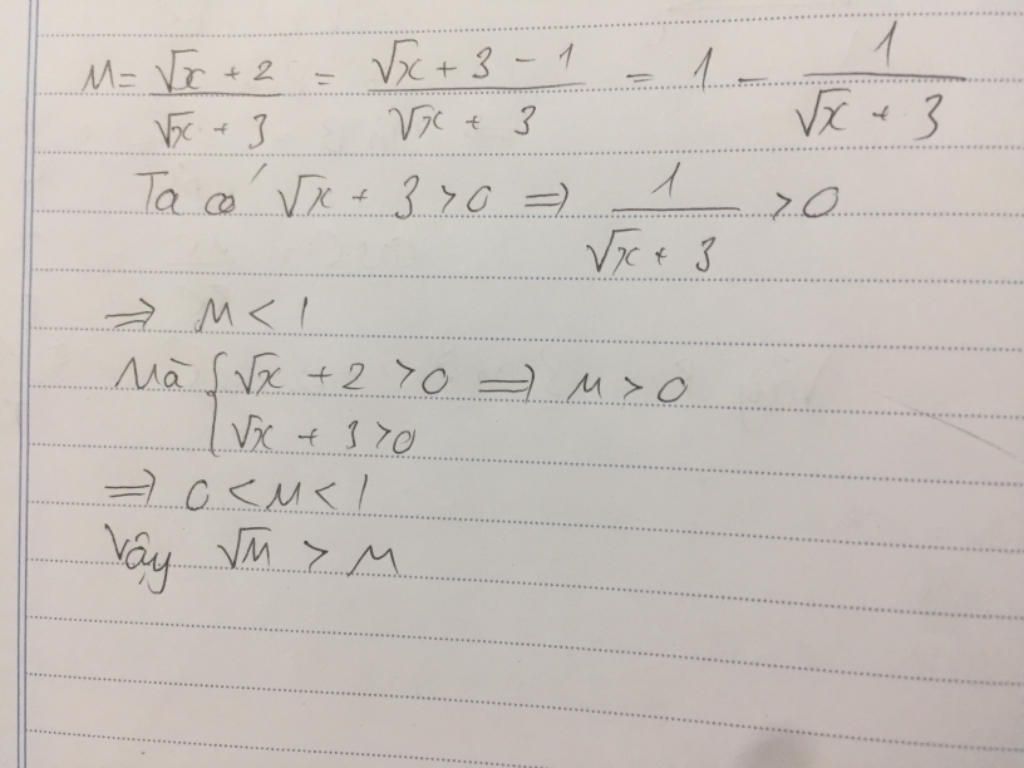 M = (√x + 2)/(√x + 3) = (√x + 3 - 1)/(√x + 3) = 1 - 1/(√x + 3)
Ta có √x + 3 > 0 => 1/(√x + 3) > 0
=> M < 1
Mà { √x + 2 > 0 => M > 0
√x + 3 > 0
=> 0 < M < 1
Vậy √M > M